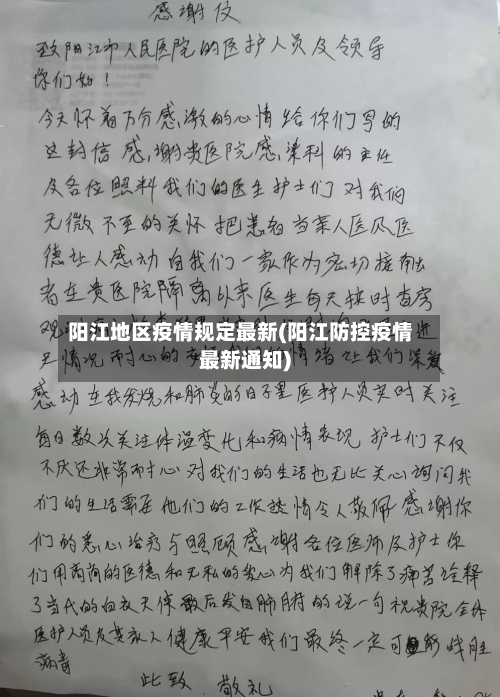 感谢仪
致阳江市人民医院的医护人员及领导
你们好!
今天怀着万分感激的心情给你们写的
这封信感谢贵医院感染科的主任
及各位照料我们的医生护士们对我们
无微不至的关怀把患者当亲人医风医
德让人感动自我们一家作为密切接触
者在贵医院隔离以来医生每天按时查房
阳江地区疫情规定最新(阳江防控疫情
最新通知)
情况耐心的 情绪让我们深深
感动在我发烧和肺炎的日子里医护人员实时关注
每日数次关注体温变化和病情表现护士们不仅
不厌还非常耐心对我们的生活也无比关心询问我
们的生活需要他们的工作热情令人敬佩感谢你
们的悉心治疗与照顾感谢各位医师及护士你
们用高尚的医德和无私的爱心为我们解除了痛苦诠释
了当代的白衣天使最后发自肺腑的说一句祝贵院全体
医护人员及其家人健康平安我们最终一定可 能战胜
病毒
此致 敬礼